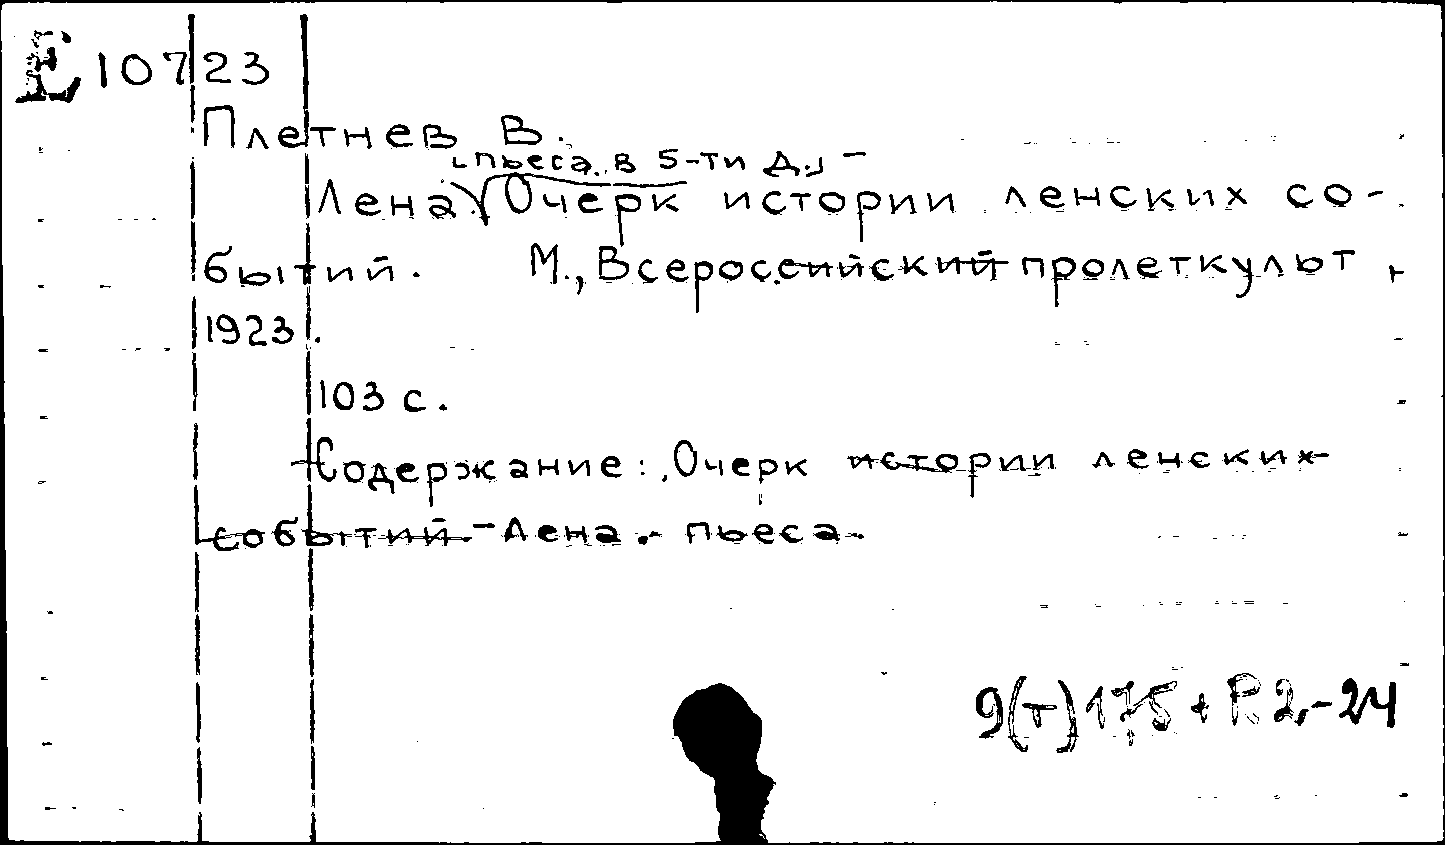 E 10723
Плетнев В.
[пьеса в 5-ти д.] –
Лена. Очерк истории ленских со-
бытий. М., Всероссийский пролеткульт,
1923.
103 с.
Содержание: Очерк истории ленских
событий. – Лена. – пьеса.
9(т)175 + Р.2.-24